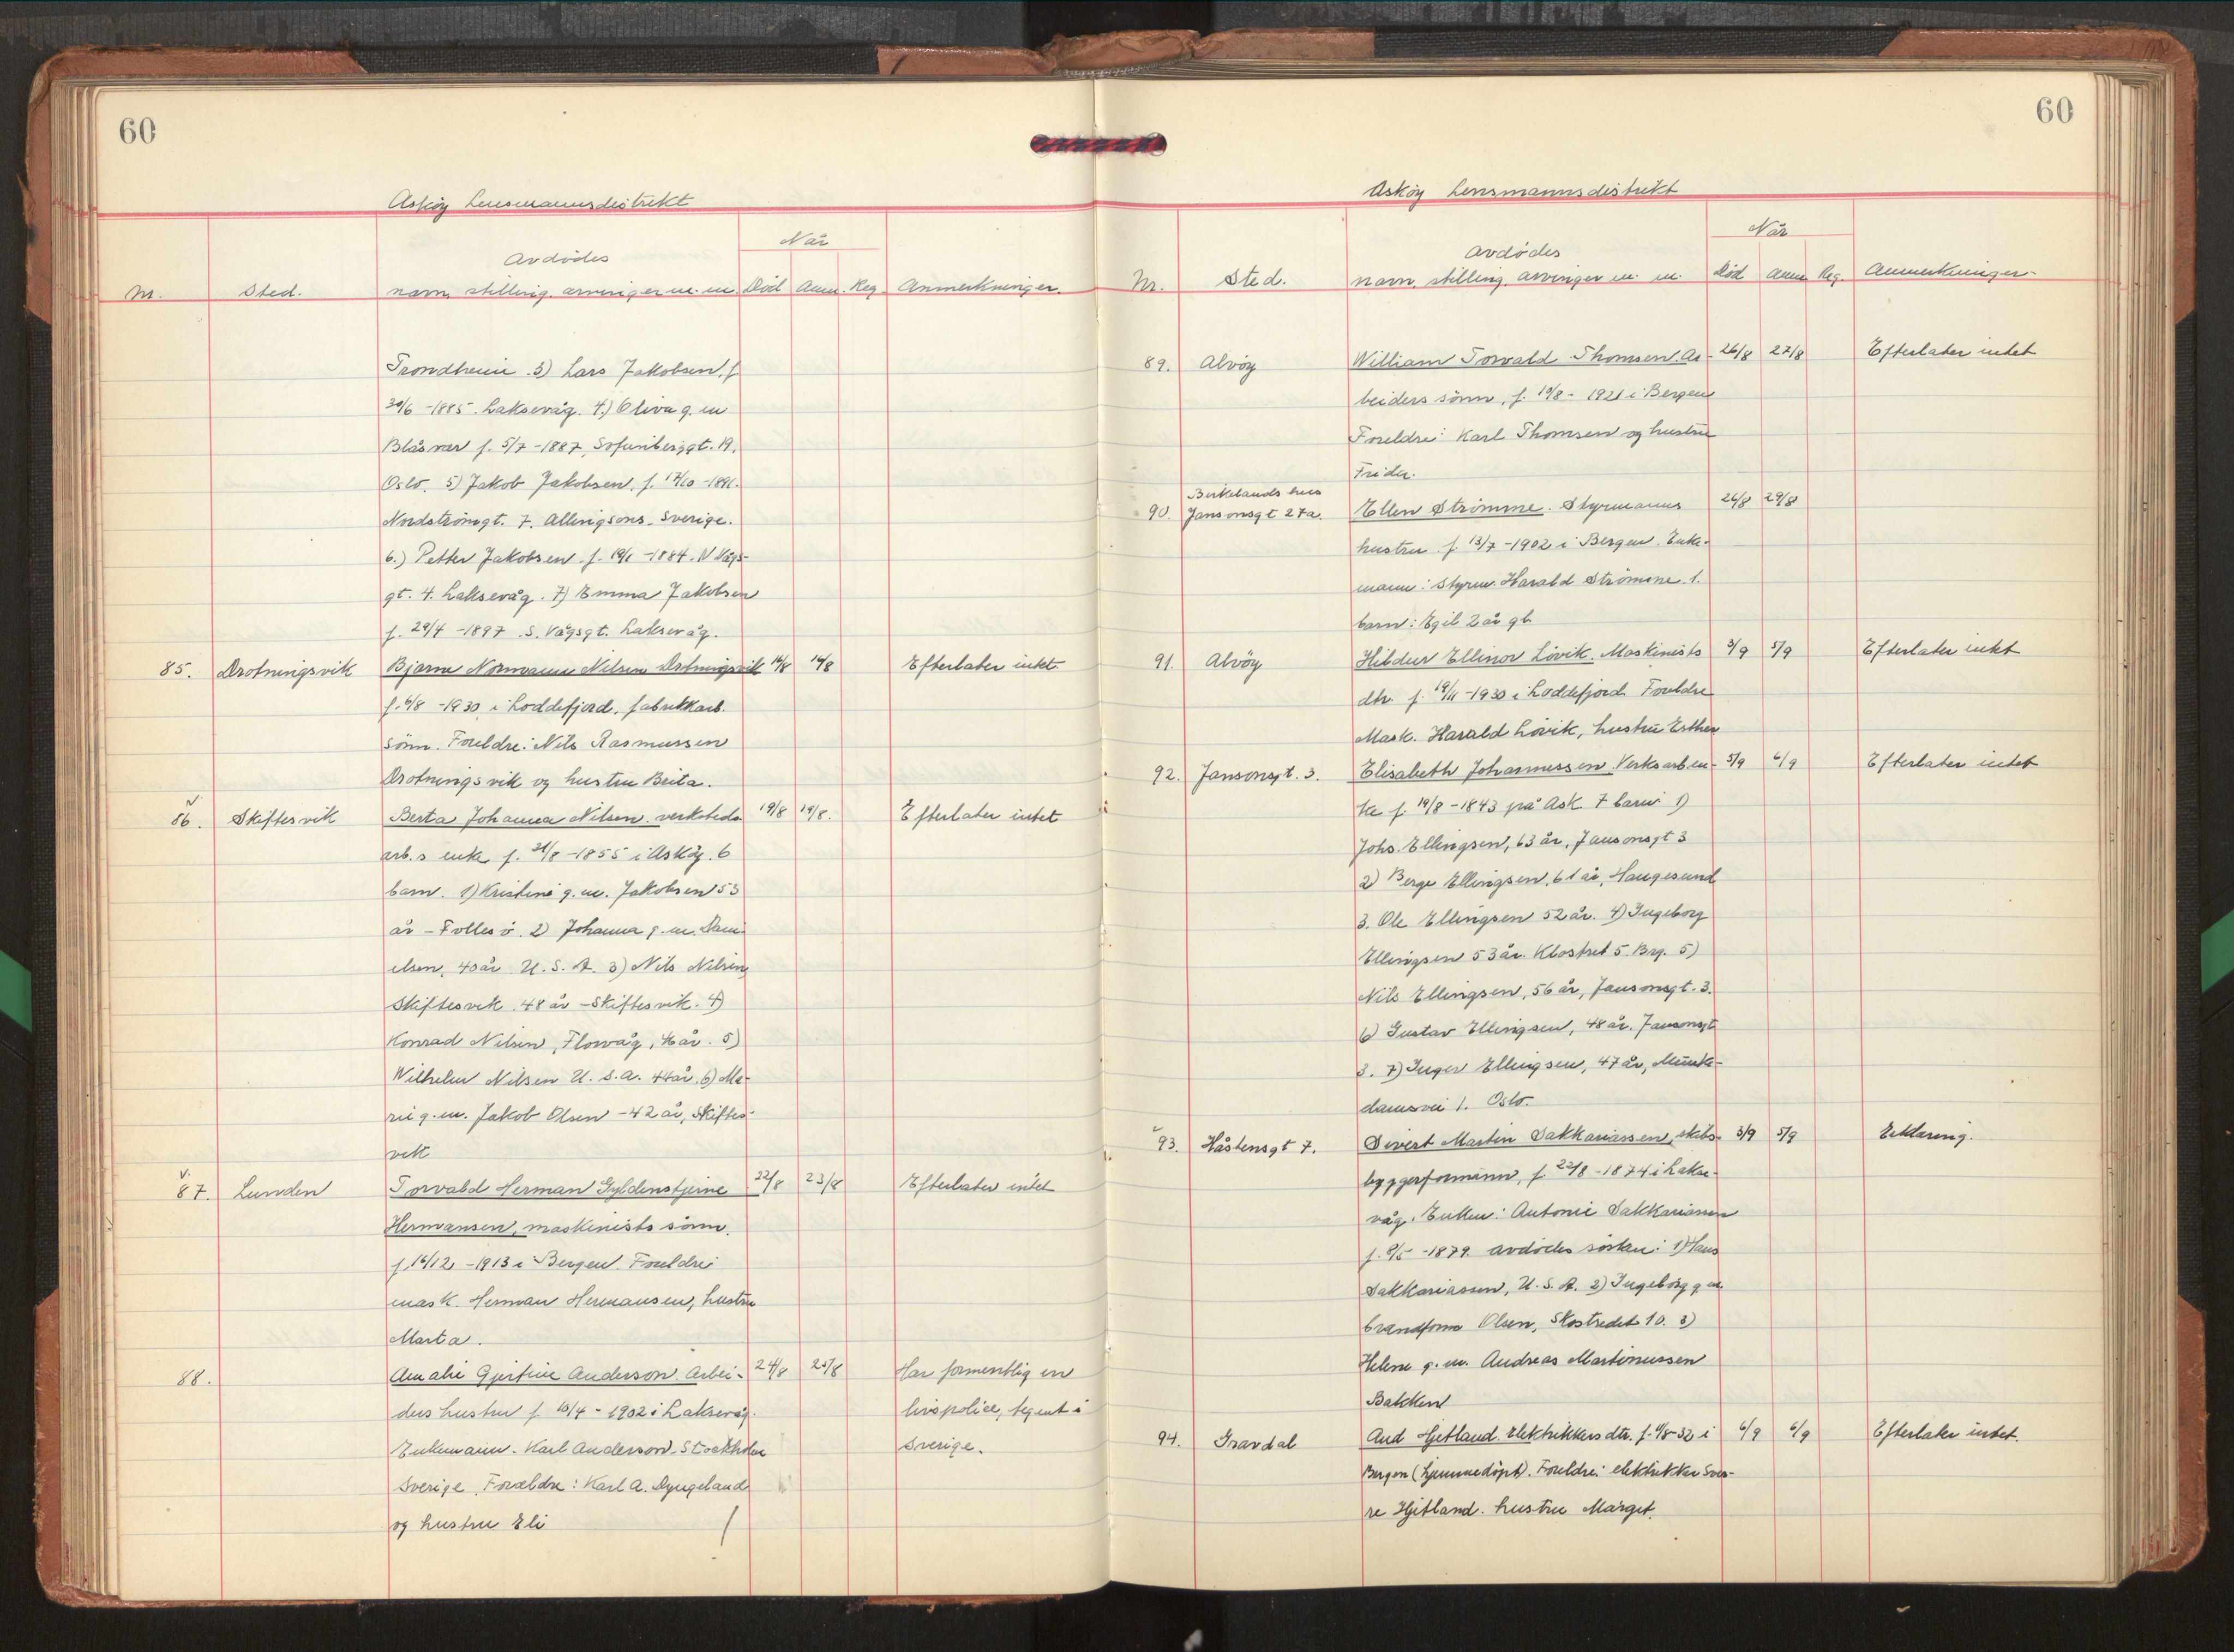 60
Askøy Lensmannsdistrikt
Når
Avdödes
Nr. Sted. navn, stilling, arvinger m. m. Död Anm. Reg. Anmerkninger.
Trondheim. 3) Lars Jakobsen, f.
30/6 -1885. Laksevåg. 4.) Oliva g. m
Blåsvær f. 5/7 -1887, Sofienberggt. 19.
Oslo. 5) Jakob Jakobsen, f. 17/10 -1891.
Nordströmgt. 7. Allingsons. Sverige.
6.) Petter Jakobsen. f. 19/1 -1884. N Vågs-
gt. 4. Laksevåg. 7) Emma Jakobsen
f. 29/4 -1897. S. Vågsgt. Laksevåg.
85. Drotningsvik Bjarne Normann Nilsen Drotningsvik 14/8 14/8 Efterlater intet.
f. 6/8 -1930 i Loddefjord, fabrikkarb.
sönn. Foreldre: Nils Rasmussen
Drotningsvik og hustru Brita.
v 86. Skiftesvik Berta Johanna Nilsen. verksteds 19/8 19/8. Efterlater intet
arb.s enke f. 21/8 -1855 i Askøy. 6
barn. 1) Kristine g. m. Jakobsen 53
år - Follesö. 2) Johanna g. m. Dani-
elsen, 40 år U. S. A. 3) Nils Nilsen
Skiftesvik. 48 år - Skiftesvik. 4)
Konrad Nilsen, Florvåg, 46 år. 5)
Wilhelm Nilsen U. S. A. 44 år. 6) Ma-
rie g. m. Jakob Olsen - 42 år, Skiftes-
vik
v. 87. Lunden Torvald Herman Gyldenstjerne 22/8 23/8 Efterlater intet
Hermansen, maskinists sönn.
f. 16/12 -1913 i Bergen. Foreldre:
mask. Herman Hermansen, hustru
Marta.
88. Amalie Gjertine Anderson. Arbei- 24/8 25/8 Har formentlig en
ders hustru f. 10/4 - 1902 i Laksevåg. livspolice, tegnet i
Enkemann. Karl Anderson, Stockholm Sverige.
Sverige. Foreldre: Karl A. Dyngeland
og hustru Eli
60
Askøy Lensmannsdistrikt
Når
Avdödes
Nr. Sted. navn, stilling, arvinger m. m. Död Anm Reg. Anmerkninger.
89. Alvöy William Torvald Thomsen. Ar- 26/8 27/8 Efterlater intet
beiders sönn, f. 19/8 - 1921 i Bergen
Foreldre: Karl Thomsen og hustru
Frida.
Birkelands hus
90. Jansonsgt 27a. Ellen Strömme. Styrmanns 26/8 29/8
hustru f. 13/7 -1902 i Bergen. Enke-
mann: Styrm. Harald Strömme. 1.
barn: Egil 2 år gl.
91. Alvöy Hildur Ellinor Lövik. Maskinists 3/9 5/9 Efterlater intet
dtr. f. 19/11 -1930 i Loddefjord Foreldre
Mask. Harald Lövik, hustru Esther
92. Jansonsgt. 3. Elisabeth Johannessen. Verksarb en- 5/9 6/9 Efterlater intet
ke f. 19/8 -1843 på Ask 7 barn 1)
Johs. Ellingsen, 63 år, Jansonsgt 3
2) Berge Ellingsen, 61 år, Haugesund
3. Ole Ellingsen 52 år. 4) Ingeborg
Ellingsen 53 år. Klostret 5. Brg. 5)
Nils Ellingsen, 56 år, Jansonsgt. 3.
6) Gustav Ellingsen, 48 år. Jansonsgt
3. 7) Inger Ellingsen, 47 år, Munke-
damsvei 1. Oslo.
v 93. Håstensgt 7. Sivert Martin Sakkariassen, skibs- 3/9 5/9 Erklæring.
byggerformann, f. 22/8 -1874 i Lakse-
våg. Enken: Antonie Sakkariassen
f. 8/5 -1879. avdödes sösken: 1) Hans
Sakkariassen, U. S. A. 2) Ingeborg g m
brandform Olsen, Skostredet 10. 3)
Helene g. m. Andreas Martinussen
Bakken
94. Gravdal Aud Hjetland. elektrikkers dtr. f. 4/8-32 i 6/9 6/9 Efterlater intet.
Bergen (hjemmedöpt). Foreldre: elektrikker Sver-
re Hjetland. hustru Marget.